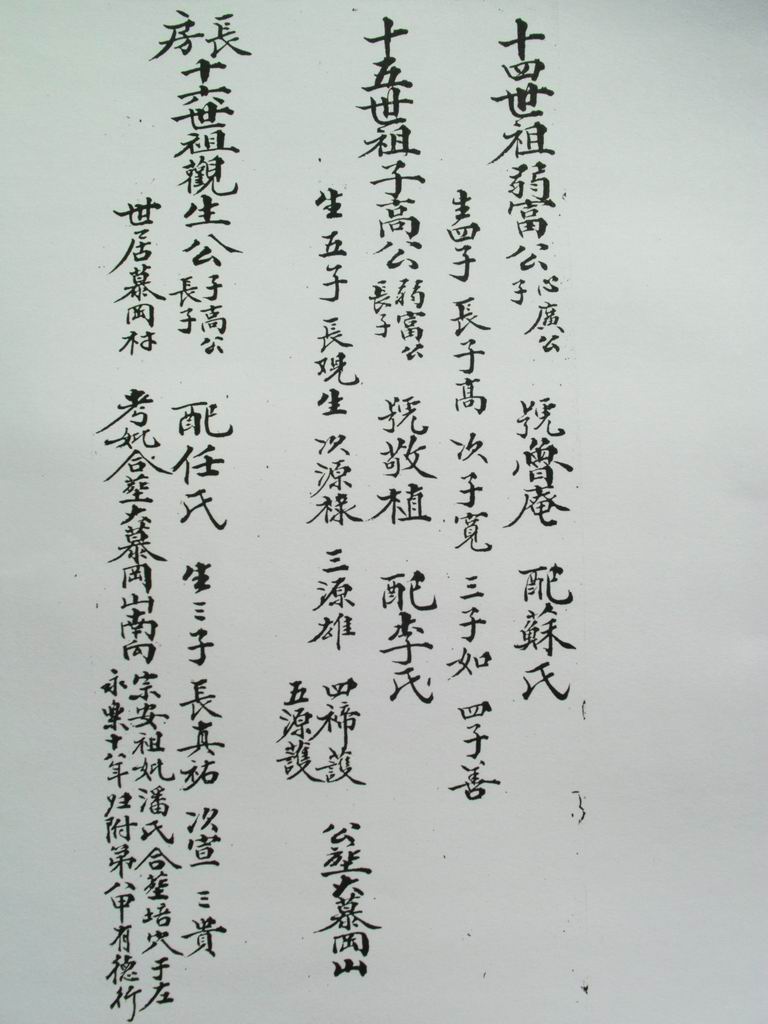 十四世祖弱富公 心廣公子 號魯庵 配蘇氏
生四子 長子高 次子寬 三子如 四子善
十五世祖子高公 弱富公長子 號敬植 配李氏
生五子 長觀生 次源祿 三源雄 四禘護 五源護 公塟大慕岡山
長房 十六世祖觀生公 子高公長子 配任氏 生三子 長真祐 次宣 三貴
世居慕岡村 考妣合塟大慕岡山南向 宗安祖妣潘氏合塟培穴于左
永樂十八年归附第八甲有德行